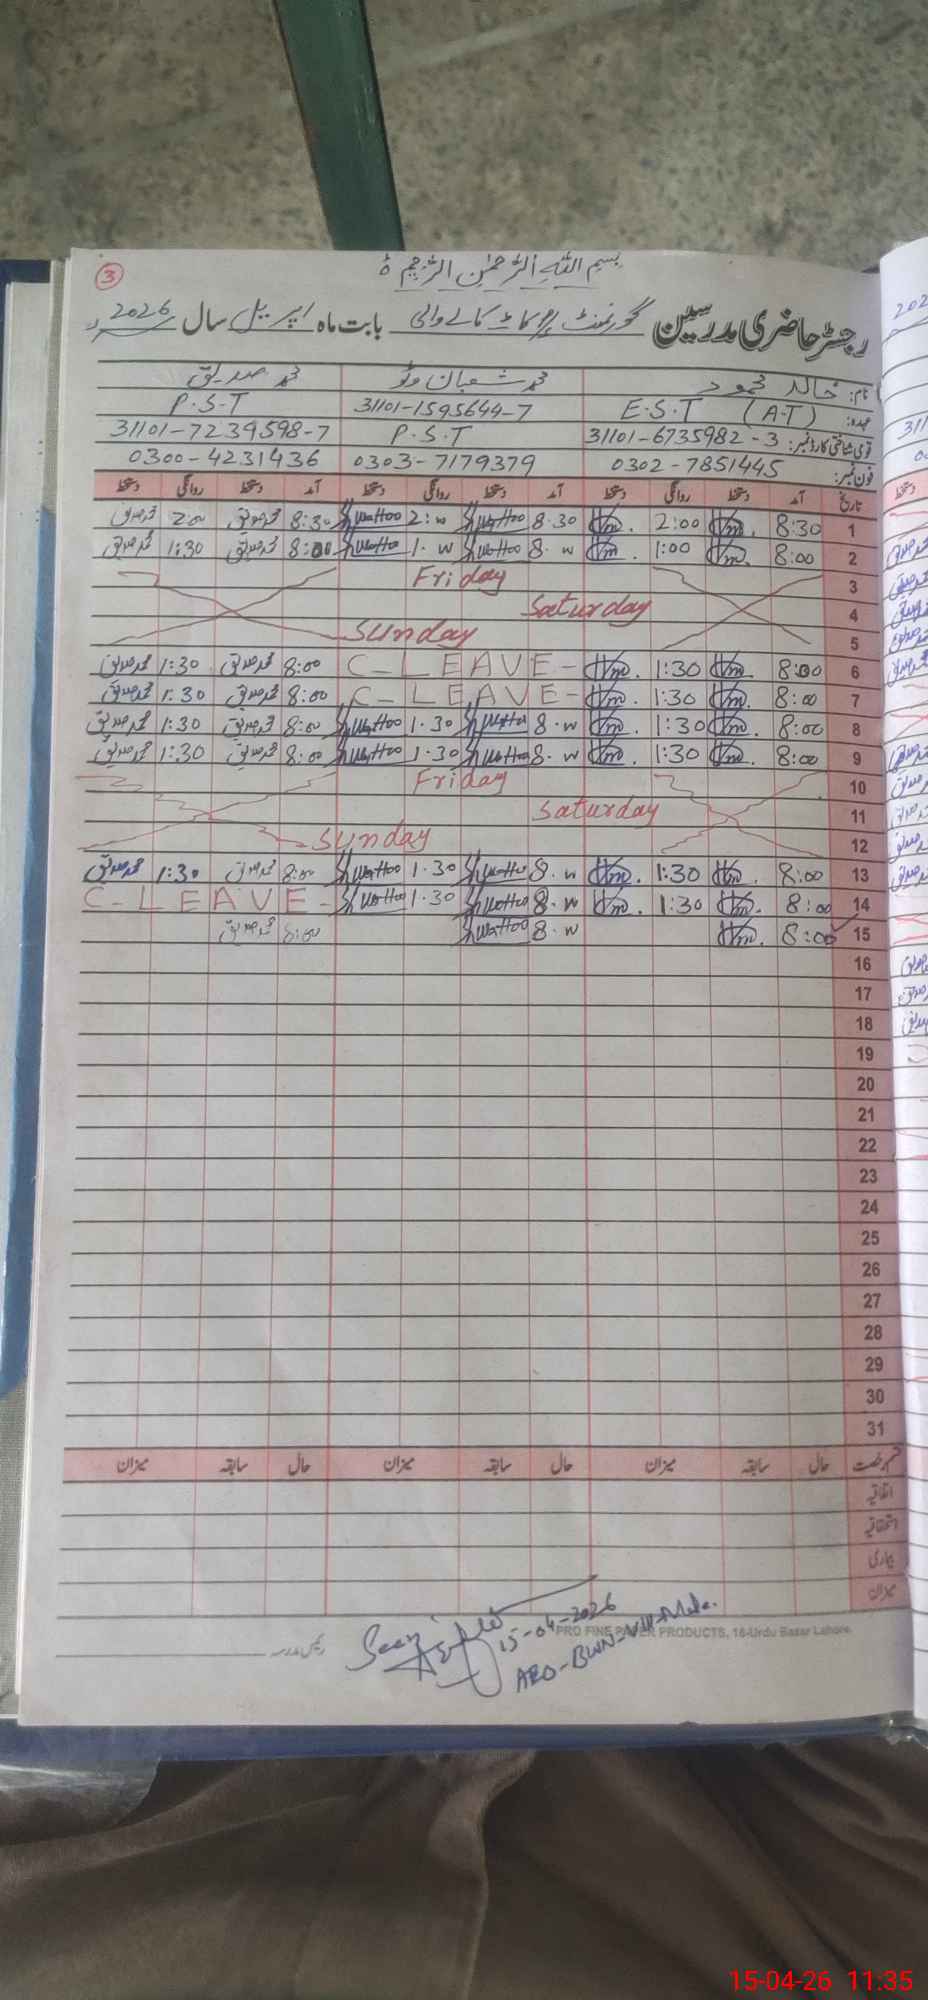 3
بسم الله الرحمٰن الرحیم
رجسٹر حاضری مدرسین گورنمنٹ بابت ماہ اپریل سال 2026ء
نام: خالد محمود محمد شعبان وٹو محمد صدیق
عہدہ: E.S.T (A-T) 31101-1595644-7 P.S.T
قومی شناختی کارڈ نمبر: 31101-6735982-3 P.S.T 31101-7239598-7
فون نمبر: 0302-7851445 0303-7179379 0300-4231436
تاریخ آمد دستخط روانگی دستخط آمد دستخط روانگی دستخط آمد دستخط روانگی دستخط
1 8:30 2:00 8.30 Shwattoo 2:00 Shwattoo 8:30 محمد صدیق 2:00 محمد صدیق
2 8:00 1:00 8.00 Shwattoo 1.00 Shwattoo 8:00 محمد صدیق 1:30 محمد صدیق
3 Friday
4 Saturday
5 Sunday
6 8:00 1:30 C-LEAVE- 8:00 محمد صدیق 1:30 محمد صدیق
7 8:00 1:30 C-LEAVE- 8:00 محمد صدیق 1:30 محمد صدیق
8 8:00 1:30 8.00 Shwattoo 1.30 Shwattoo 8:00 محمد صدیق 1:30 محمد صدیق
9 8:00 1:30 8.00 Shwattoo 1.30 Shwattoo 8:00 محمد صدیق 1:30 محمد صدیق
10 Friday
11 Saturday
12 Sunday
13 8:00 1:30 8.00 Shwattoo 1.30 Shwattoo 8:00 محمد صدیق 1:30 محمد صدیق
14 8:00 1:30 8.00 Shwattoo 1.30 Shwattoo C-LEAVE-
15 8:00 8.00 Shwattoo 8:00 محمد صدیق
16
17
18
19
20
21
22
23
24
25
26
27
28
29
30
31
قسم رخصت حال سابقہ میزان حال سابقہ میزان حال سابقہ میزان
اتفاقیہ
استحقاقیہ
بیماری
میزان
15-04-2026
PRO FINE PAPER PRODUCTS, 16-Urdu Bazar Lahore.
رئیس مدرسہ
AEO-BWN-VIII-Male.
15-04-26 11:35